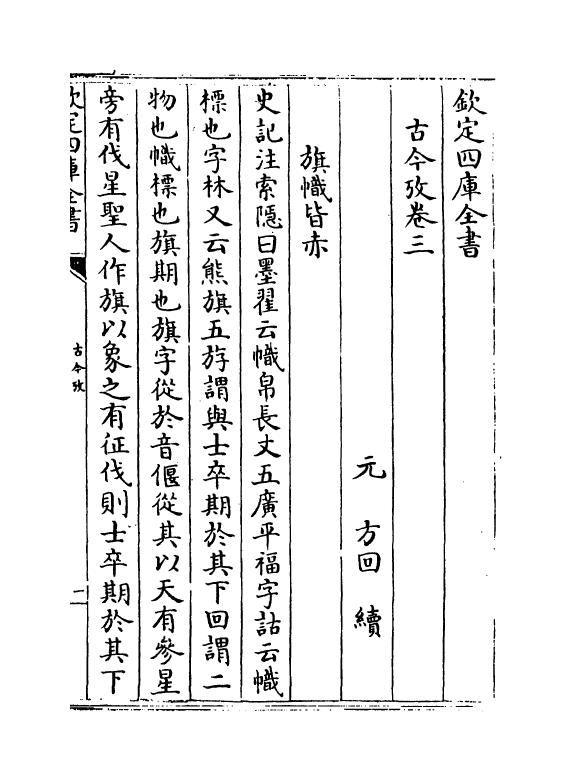 欽定四庫全書
古今攷卷三
元 方回 續
旗幟皆赤
史記注索隱曰墨翟云幟帛長丈五廣平福字詁云幟
標也字林又云熊旗五斿謂與士卒期於其下回謂二
物也幟標也旗期也旗字從㫃音偃從其以天有參星
旁有伐星聖人作旗以象之有征伐則士卒期於其下
欽定四庫全書
古今攷
二